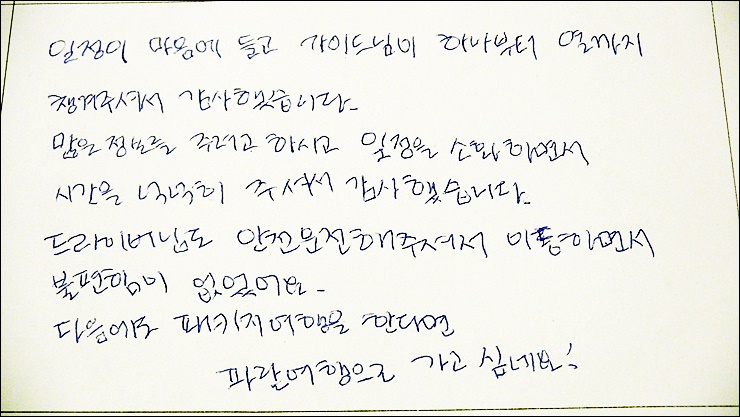 일정이 마음에 들고 가이드님이 하나부터 열까지
챙겨주셔서 감사했습니다.
많은 정보를 주려고 하시고 일정을 소화하면서
시간을 넉넉히 주셔서 감사했습니다.
드라이버님도 안전운전해주셔서 이동하면서
불편함이 없었어요.
다음에도 패키지여행을 한다면
파랑여행으로 가고 싶네요!